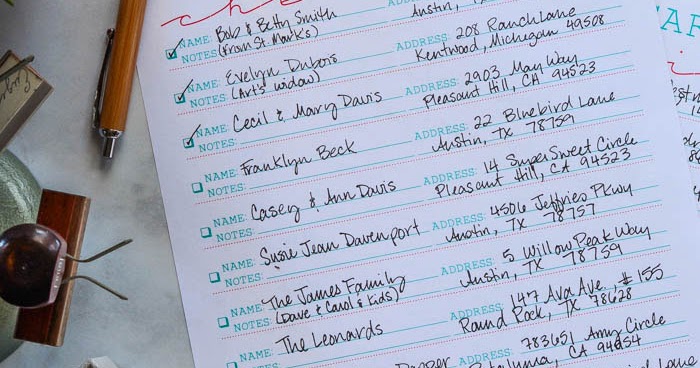 Austin, TX
NAME: Bob & Betty Smith ADDRESS: 208 Ranch Lane
NOTES: (from St. Mark's) Kentwood, Michigan 49508
NAME: Evelyn Dubois ADDRESS: 2903 May Way
NOTES: (Art's widow) Pleasant Hill, CA 94523
NAME: Cecil & Mary Davis ADDRESS: 22 Bluebird Lane
NOTES: Austin, TX 78759
NAME: Franklyn Beck ADDRESS: 14 Super Sweet Circle
NOTES: Pleasant Hill, CA 94523
NAME: Casey & Ann Davis ADDRESS: 4506 Jeffries Pkwy
NOTES: Austin, TX 78757
NAME: Susie Jean Davenport ADDRESS: 5 Willow Peak Way
NOTES: Austin, TX 78759
NAME: The James Family ADDRESS: 147 Ava Ave, #155
NOTES: (Dave & Carol & Kids) Round Rock, TX 78628
NAME: The Leonards ADDRESS: 783651 Amy Circle
Petaluma, CA 94954